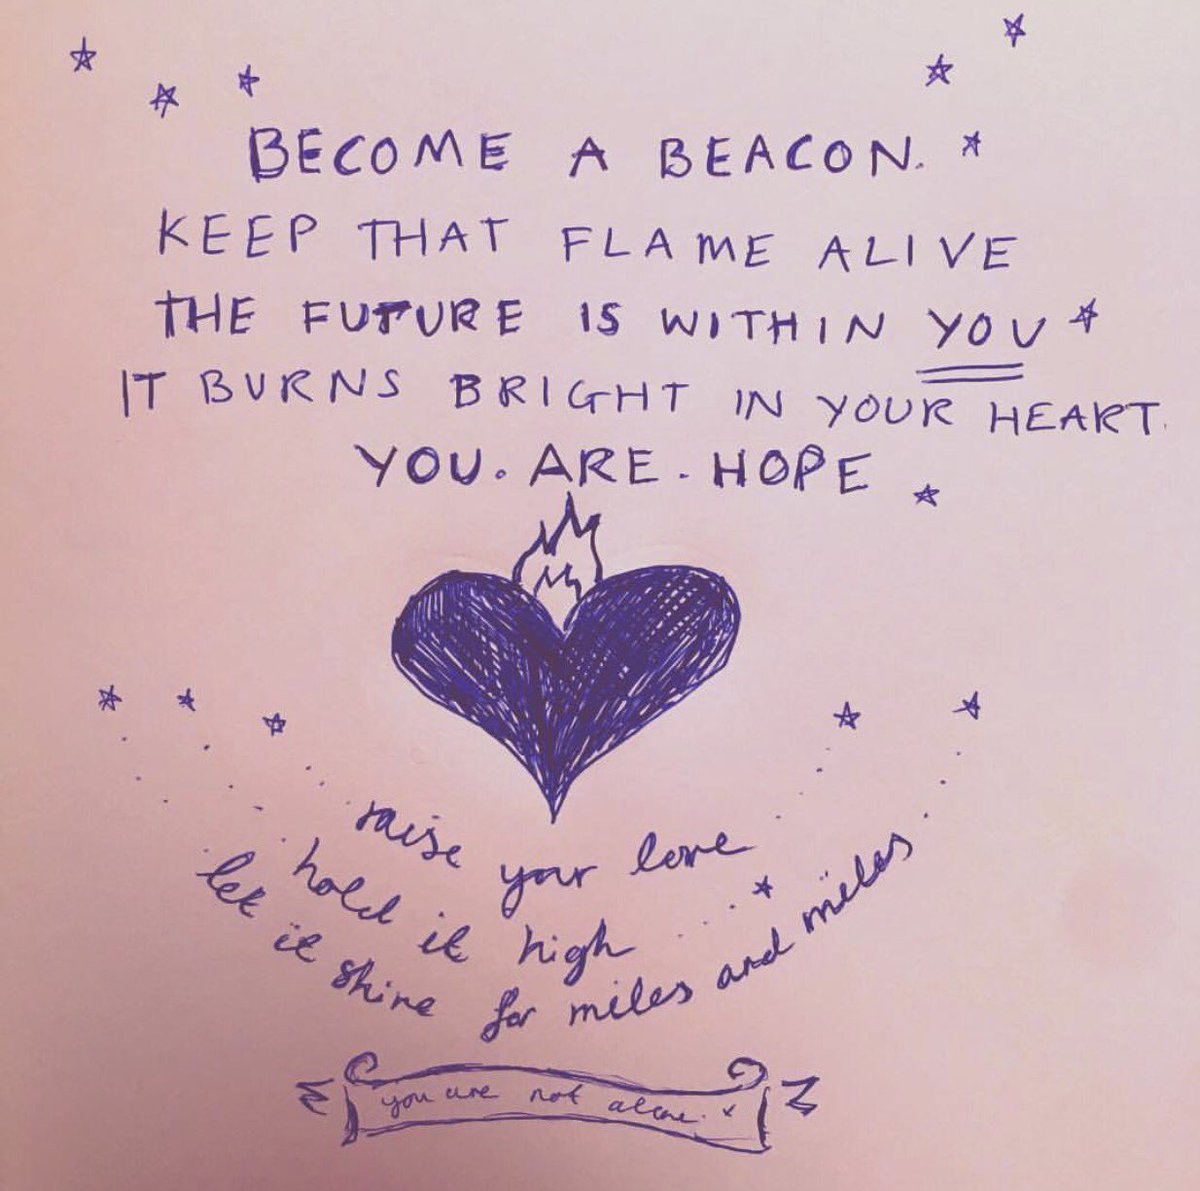 BECOME A BEACON.
KEEP THAT FLAME ALIVE
THE FUTURE IS WITHIN YOU
IT BURNS BRIGHT IN YOUR HEART.
YOU. ARE. HOPE
raise your love
hold it high
let it shine for miles and miles
you are not alone. x